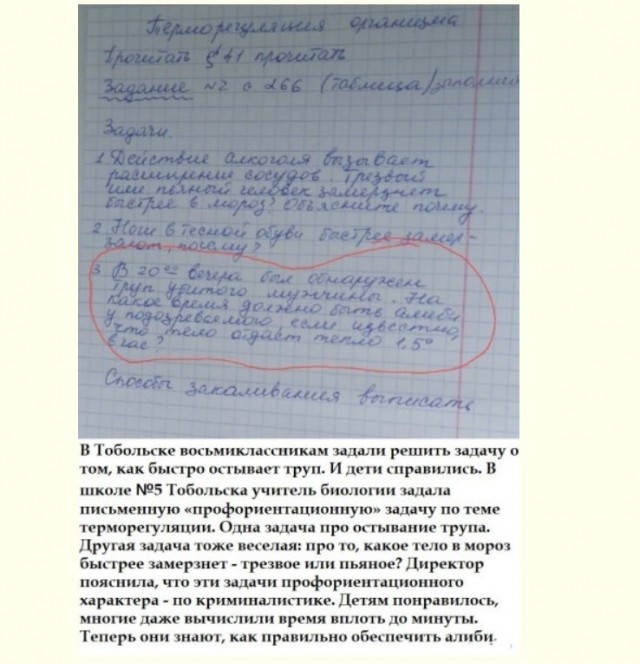 Терморегуляция организма
Прочитать § 41 прочитать
Задание №2 с 266 (таблица) заполнит
Задачи.
1. Действие алкоголя вызывает
расширение сосудов. Трезвый
или пьяный человек замерзнет
быстрее в мороз? Объясните почему.
2. Ноги в тесной обуви быстрее замер-
зают, почему?
3. В 20 00 вечера был обнаружен
труп убитого мужчины. На
какое время должно быть алиби
у подозреваемого, если известно,
что тело отдает тепло 1,5°
в час?
Способы закаливания выписать
В Тобольске восьмиклассникам задали решить задачу о
том, как быстро остывает труп. И дети справились. В
школе №5 Тобольска учитель биологии задала
письменную «профориентационную» задачу по теме
терморегуляции. Одна задача про остывание трупа.
Другая задача тоже веселая: про то, какое тело в мороз
быстрее замерзнет - трезвое или пьяное? Директор
пояснила, что эти задачи профориентационного
характера - по криминалистике. Детям понравилось,
многие даже вычислили время вплоть до минуты.
Теперь они знают, как правильно обеспечить алиби.